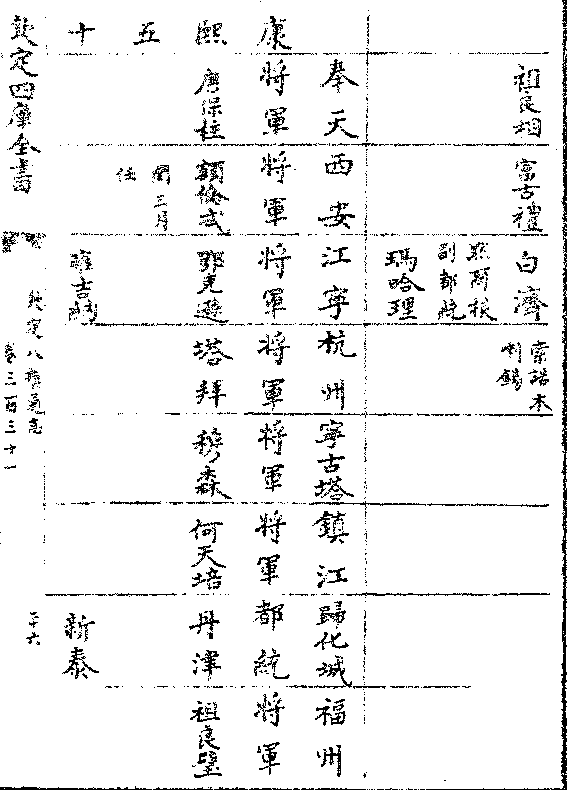 祖良相 富古禮 白濟 索諾木
喇錫
默爾根
副都統
瑪哈理
奉天 西安 江寧 杭州 寧古塔 鎮江 歸化城 福州
康 將軍 將軍 將軍 將軍 將軍 將軍 都統 將軍
熙 唐保柱 額倫忒 鄂克遜 塔拜 穆森 何天培 丹津 祖良璧
五 閏三月
任
十 雍吉納 新泰
欽定四庫全書 欽定八旗通志
卷三百三十一 二十六